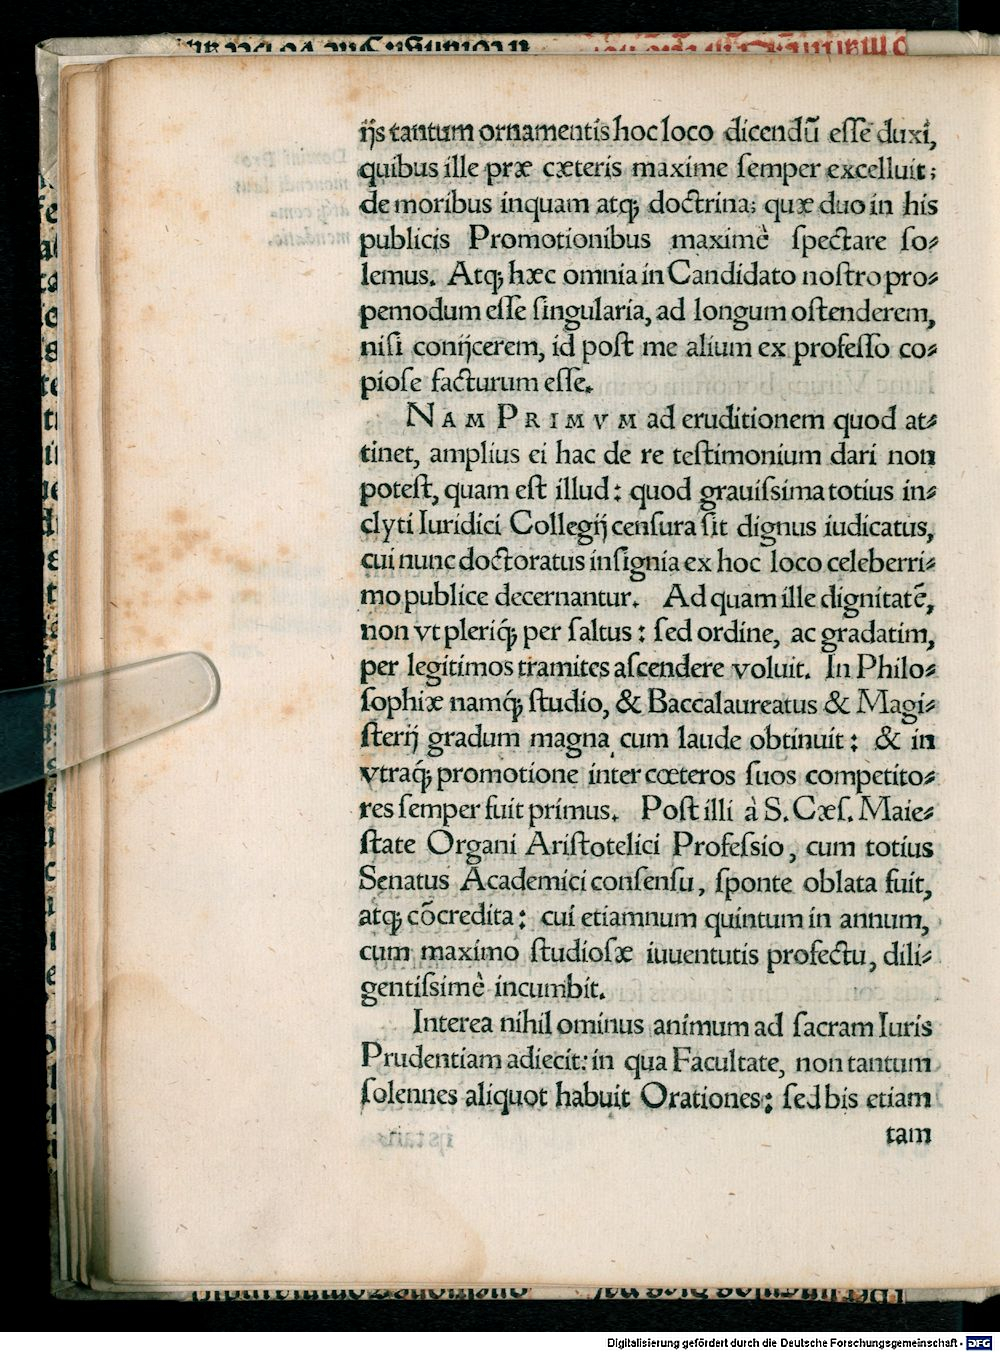 ijs tantum ornamentis hoc loco dicendũ esse duxi,
quibus ille præ cæteris maxime semper excelluit;
de moribus inquam atq; doctrina; quæ duo in his
publicis Promotionibus maximè spectare so-
lemus. Atq; hæc omnia in Candidato nostro pro-
pemodum esse singularia, ad longum ostenderem,
nisi conijcerem, id post me alium ex professo co-
piose facturum esse.
NAM PRIMVM ad eruditionem quod at-
tinet, amplius ei hac de re testimonium dari non
potest, quam est illud: quod grauissima totius in-
clyti Iuridici Collegij censura sit dignus iudicatus,
cui nunc doctoratus insignia ex hoc loco celeberri-
mo publice decernantur. Ad quam ille dignitatẽ,
non vt pleriq́; per saltus: sed ordine, ac gradatim,
per legitimos tramites ascendere voluit. In Philo-
sophiæ namq́; studio, & Baccalaureatus & Magi-
sterij gradum magna cum laude obtinuit: & in
vtraq́; promotione inter cœteros suos competito-
res semper fuit primus. Post illi à S. Cæs. Maie-
state Organi Aristotelici Professio, cum totius
Senatus Academici consensu, sponte oblata fuit,
atq; cõcredita: cui etiamnum quintum in annum,
cum maximo studiosæ iuuentutis profectu, dili-
gentissimè incumbit.
Interea nihil ominus animum ad sacram Iuris
Prudentiam adiecit: in qua Facultate, non tantum
solennes aliquot habuit Orationes: sed bis etiam
tam
Digitalisierung gefördert durch die Deutsche Forschungsgemeinschaft - DFG